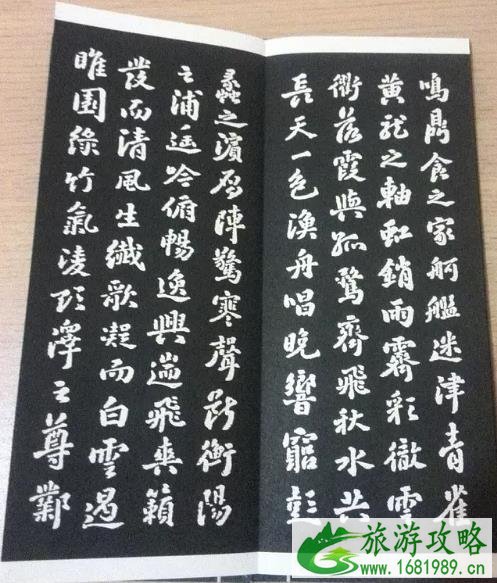 鳴鼎食之家舸艦迷津青雀
黄龍之軸虹銷雨霽彩徹雲
衢落霞與孤鶩齊飛秋水共
長天一色漁舟唱晚響窮彭
蠡之濱雁陣驚寒聲斷衡陽
之浦遥吟俯暢逸興遄飛爽籟
發而清風生纖歌凝而白雲遏
睢園綠竹氣凌彭澤之尊鄴
旅游攻略
www.1681989.cn